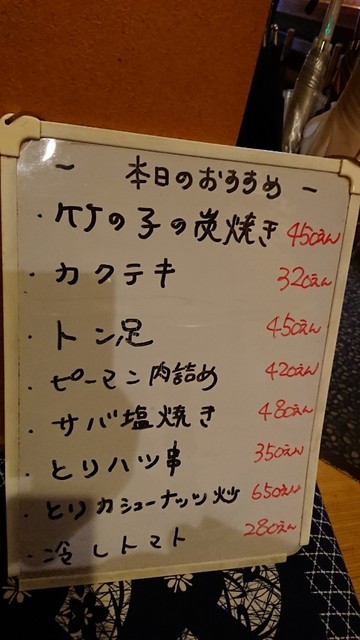 - 本日のおすすめ -
・竹の子の炭焼き 450えん
・カクテキ 320えん
・トン足 450えん
・ピーマン肉詰め 420えん
・サバ塩焼き 480えん
・とりハツ串 350えん
・とりカシューナッツ炒 650えん
・冷しトマト 280えん